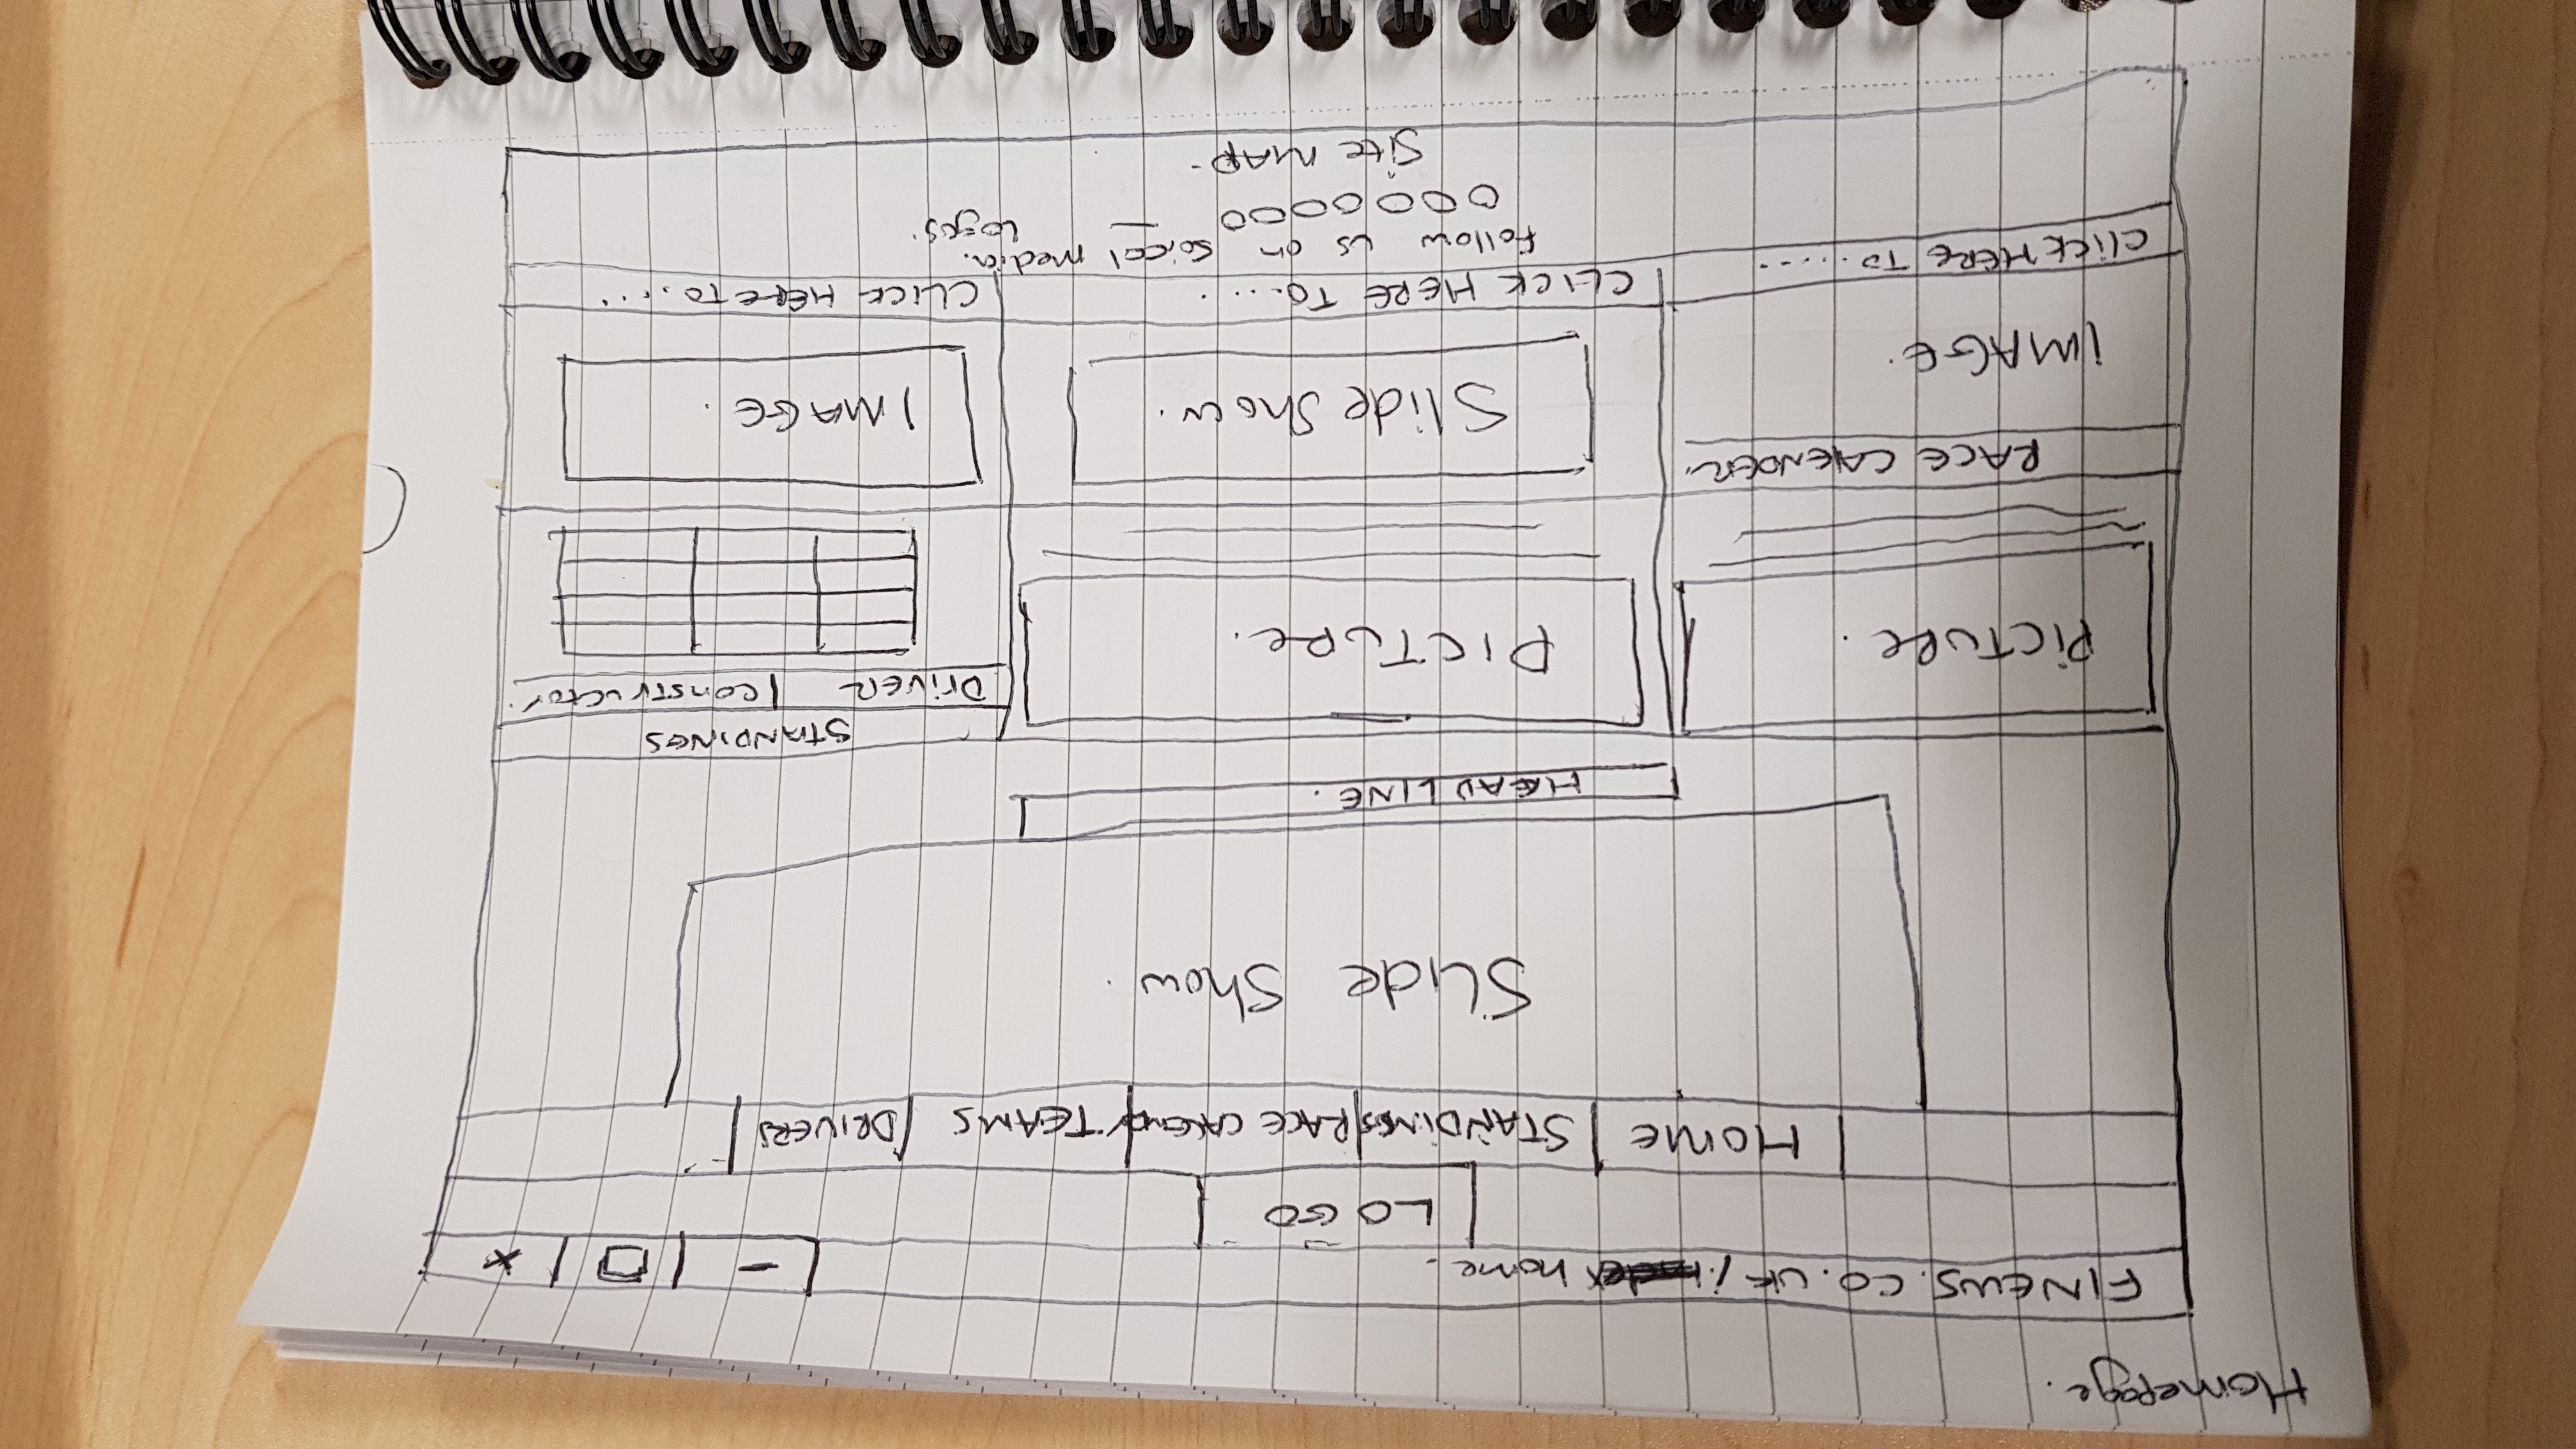 Homepage.
F1NEWS.CO.UK/index home.
LOGO
HOME STANDINGS RACE CALENDR TEAMS DRIVERS
Slide Show.
HEADLINE.
STANDINGS
DRIVER constructor.
PICTURE. PICTURE.
RACE CALENDER.
IMAGE. Slide show. IMAGE.
CLICK HERE TO..... CLICK HERE TO.... CLICK HERE TO.....
follow us on soical media.
logos.
Site MAP.